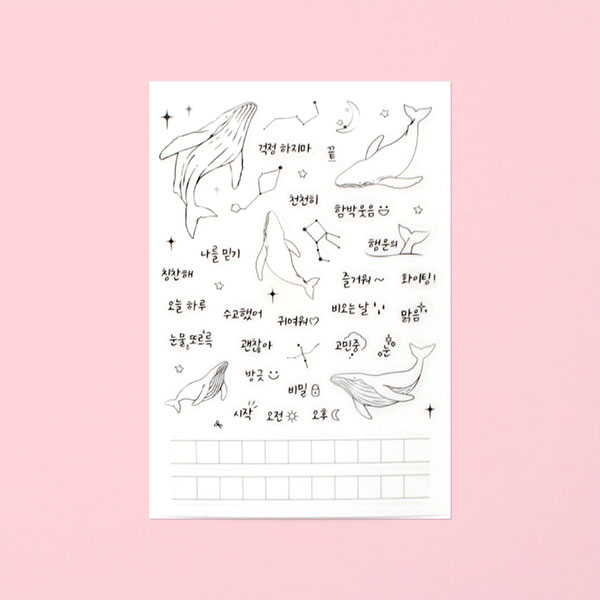 걱정 하지마
끝
천천히
함박웃음
행운의
나를 믿기
칭찬해
즐거워~
화이팅!
오늘 하루
수고했어
귀여워♡
비오는 날
맑음
눈물 또르륵
괜찮아
고민중
눈
방긋
비밀
시작
오전
오후